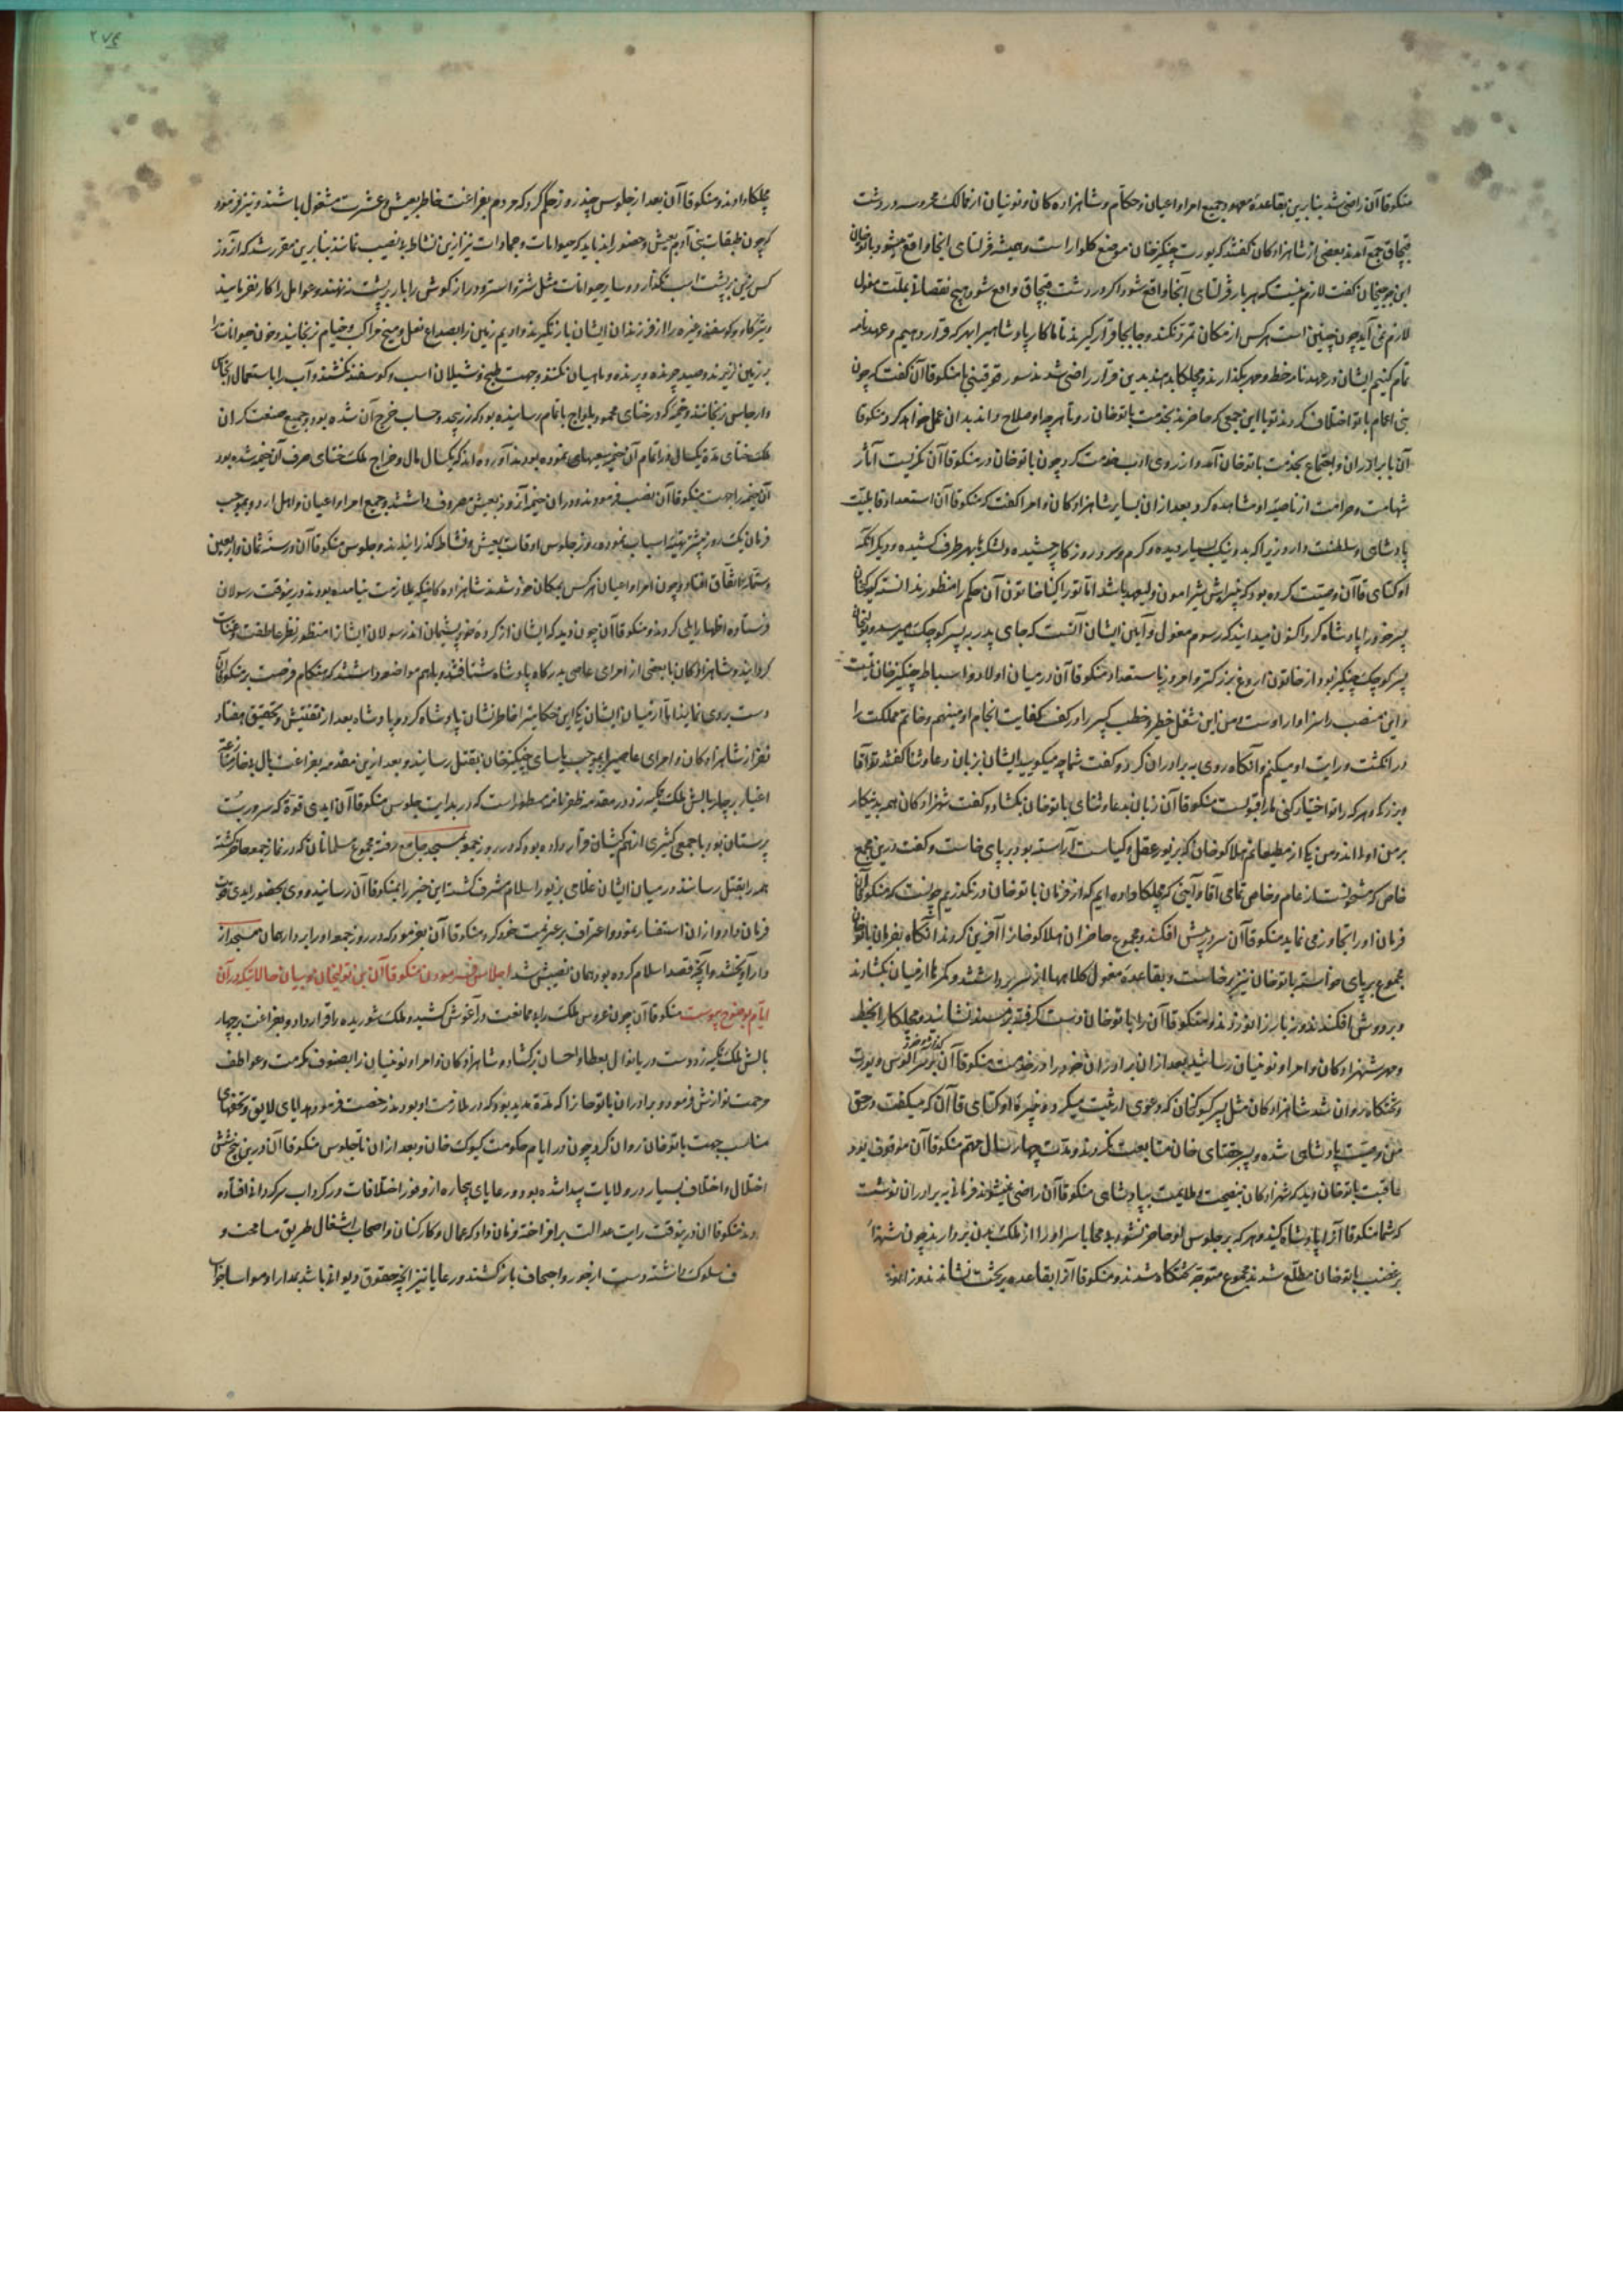 منکوقاآن راضی شد بنابرین بقاعدهٔ معهود جمیع امرا و اعیان و حکام و شاهزاده کان و نوئیان از ممالک محروسه در دشت
قبچاق جمع آمدند بعضی از شاهزادکان گفتند که یورت چنکیزخان موضع کلوار است و همیشه قرلتای انجا واقع میشود باتوخان
ابن جوجیخان گفت لازم نیست که هر بار قرلتای آنجا واقع شود اگر در دشت قبچاق واقع شود هیچ نقصان بملت مغول
لازم نمی آید چون چنین است هرکس از مکان تمرد نکند و جابجا قرار گیرند تا ما کار پادشاهی را بهر که قرار دهیم و عهدنامه
تمام کنیم ایشان در عهدنامه خط و مهر بگذارند و مچلکا بدهند بدین قرار راضی شدند سورقوقیتی با منکوقاآن گفت که چون
بنی اعمام با تو اختلاف کردند تو با این جمعی که حاضرند بخدمت باتوخان رو تا هرچه او صلاح داند بدان عمل خواهد کرد منکوقا
آن با برادران و اجتماع بخدمت باتوخان آمد و از روی ادب خدمت کرد چون باتوخان در منکوقاآن نگریست آثار
شهامت و صرامت از ناصیهٔ او مشاهده کرد بعد از ان بسایر شاهزادکان و امرا گفت که منکوقاآن استعداد و قابلیّت
پادشاهی و سلطنت دارد زیرا که بد و نیک بسیار دیده و گرم و سرد روزکار چشیده و لشکرها بهر طرف کشیده و دیگر آنکه
اوکتای قاآن وصیّت کرده بود که نبیره اش شیرامون ولیعهد باشد امّا توراکینا خاتون آن حکم را منظور ندانسته کیوکخان
پسر خود را پادشاه کرد اکنون میدانید که رسوم مغول و آیین ایشان آنست که جای پدر به پسر کوچک میرسد و تولیخان
پسر کوچک چنکیز بود از خاتون اروغ بزرکتر و امروز باستعداد منکوقاآن در میان اولاد و اسباط چنکیزخان نیست
و این منصب را سزاوار اوست من این شغل خطیر و خطب کبیر را در کف کفایت انجام او مینهم و خاتم مملکت را
در انگشت درایت او میکنم و آنگاه روی به برادران کرد و گفت شما چه میکویید ایشان بزبان دعا و ثنا گفتند تو آقا
و بزرک و هر که را تو اختیار کنی ما را قبولست منکوقاآن زبان بدعا و ثنای باتوخان بکشاد و گفت شهزادکان همه بدینکار
بر من اولی اند و من یکی از مطیعانم هلاکوخان که بزیور عقل و کیاست آراسته بود بر پای خاست و گفت درین مجمع
خاص که مشحونست از عام و خاص تمامی آقا و آیینی که مچلکا داده ایم که از فرمان باتوخان در نگذریم چونست که منکوقاآن
فرمان او را تجاوز می نماید منکوقاآن سر در پیش افکند و مجموع حاضران هلاکوخان را آفرین کردند آنگاه بفرمان باتوخان
مجموع بر پای خواسته باتوخان نیز برخاست و بقاعدهٔ مغول کلاهها از سر برداشتند و کمرها از میان بکشادند
و بر دوش افکندند و نه بار زانو زدند و منکوقاآن را باتوخان دست گرفته و بر مسند نشانید و مچلکا را بخط
و مهر شهزادکان و امرا و نوئینان رسانید بعد از ان برادران خود را در خدمت منکوقاآن گذاشته خود بر سر الوس و یورت
و تختگاه روان شد شاهزادکان مثل پسر کیوکخان که دعوی ارثیت میکرد و نبیرهٔ اوکتای قاآن که میگفت در حق
من وصیّت پادشاهی شده و پسر چغتای خان متابعت نکردند و مدّت چهار سال مهم منکوقاآن موقوف بود
عاقبت باتوخان دید که شهزادکان بنصیحت و ملایمت بپادشاهی منکوقاآن راضی نمیشوند فرمانی به برادران نوشت
که شما منکوقاآن را پادشاه کنید و هر که بر جلوس او حاضر نشود بی محابا سر او را از ملک بدن بردارید چون شهزاد
بر غضب باتوخان مطلّع شدند مجموع متوجّه تختگاه شدند و منکوقاآن را بقاعده بر تخت نشاندند و زانو زد
۲۷۴
مچلکا دادند و منکوقاآن بعد از جلوس چند روز حکم کرد که مردم بفراغت خاطر بعیش و عشرت مشغول باشند و نیز فرمود
که چون طبقات بنی آدم بعیش و حضور اند باید که حیوانات و جمادات نیز ازین نشاط بی نصیب نمانند بنابرین مقرر شد که آن روز
کس زین بر پشت اسب نگذارد و سایر حیوانات مثل شتر و استر و دراز گوش را بار بر پشت ننهند و عوامل را کار نفرمایند
و شیر گاو و گوسفند و غیره را از فرزندان ایشان باز نگیرند و ادیم زمین را بصداع نعل و میخ مراکب و خیام نرنجانند و خون حیوانات را
بر زمین نریزند و صید چرنده و پرنده و ماهیان نکنند و جهت طبخ و شیلان اسب و گوسفند نکشند و آب را باستعمال انجاس
و ارجاس نرنجانند و خیمهٔ که در ختای محمود یلواج باتمام رسانیده بود که زر بیحد و حساب خرج آن شده بود و جمیع صنعت کران
ملک ختای مدّة یکسال در اتمام آن خیمه سعیهای نموده بودند آورده اند که یکسال مال و خراج ملک ختای صرف آن خیمه شده بود
آن خیمه را جهت منکوقاآن نصب فرمودند و در ان خیمه آن روز بعیش مصروف داشتند و جمیع امرا و اعیان و اهل اردو بموجب
فرمان یک روز پیشتر تهیّه اسباب نموده روز جلوس اوقات بعیش و نشاط گذرانیدند و جلوس منکوقاآن در سنه ثمان و اربعین
و ستّمایه اتّفاق افتاد و چون امرا و اعیان هرکس بمکان خود شدند شاهزاده کانیکه بملازمت نیامده بودند درینوقت رسولان
فرستاده اظهار ایلی کردند و منکوقاآن چون دید که ایشان از کردهٔ خود پشیمان اند رسولان ایشان را منظور نظر عاطفت و عنایت
گردانید و شاهزادکان با بعضی از امرای عاصی بدرکاه پادشاه شتافتند و باهم مواضعه داشتند که هنکام فرصت بر منکوقاآن
دست بردی نمایند امّا از میان ایشان یکی این حکایت را خاطرنشان پادشاه کرد و پادشاه بعد از تفتیش و تحقیق هفتاد
نفر از شاهزادکان و امرای عاصی را بموجب یاسای چنکیزخان بقتل رسانید و بعد ازین مقدمه بفراغت بال بی خار
اغیار بر چار بالش ملک تکیه زد در مقدمه ظفرنامه مسطور است که در بدایت جلوس منکوقاآن ایدی قوة که سرور بت
پرستان بود با جمعی کثیری از هم کیشان قرار داده بود که در روز جمعه بمسجد جامع رفته مجموع مسلمانان که در نماز جمعه حاضر گشته
همه را بقتل رسانند در میان ایشان غلامی بزیور اسلام مشرف گشته این خبر را بمنکوقاآن رسانید و وی بحضور ایدی قوت
فرمان داد و از ان استفسار نمود و اعتراف بر عزیمت خود کرد منکوقاآن بفرمود که در روز جمعه او را بر در همان مسجد از
دار آویختند و آنچه قصد اسلام کرده بود همان نصیبش شد اجلاس فرمودن منکوقاآن بن تولیخان و بیان حالاتیکه در آن
ایّام بوضوح پیوست منکوقاآن چون عروس ملک را بی ممانعت در آغوش کشید و ملک شوریده را قرار داد و بفراغت بر چهار
بالش ملک تکیه زد و دست دریا نوال بعطا و احسان برکشاد و شاهزادکان و امرا و نوئینان را بصنوف مکرمت و عواطف
مرحمت نوازش فرمود و برادران باتوخان را که مدّة مدید بود که در ملازمت او بودند رخصت فرمود و هدایای لایق و تحفهای
مناسب جهت باتوخان روان کرد و چون در ایام حکومت کیوک خان و بعد از ان تا جلوس منکوقاآن درین پنج شش
اختلال و اختلاف بسیار در ولایات پیدا شده بود و رعایای بیچاره از وفور اختلافات در گرداب سرکردانی افتاده
بودند منکوقاآن درینوقت رایت عدالت برافراخته فرمان داد که عمال و کارکنان و اصحاب اشغال طریق مسامحت و
سلوک داشته دست از جور و اجحاف باز کشند و رعایا نیز آنچه حقوق دیوانی باشد بمدارا و مواسا جواب